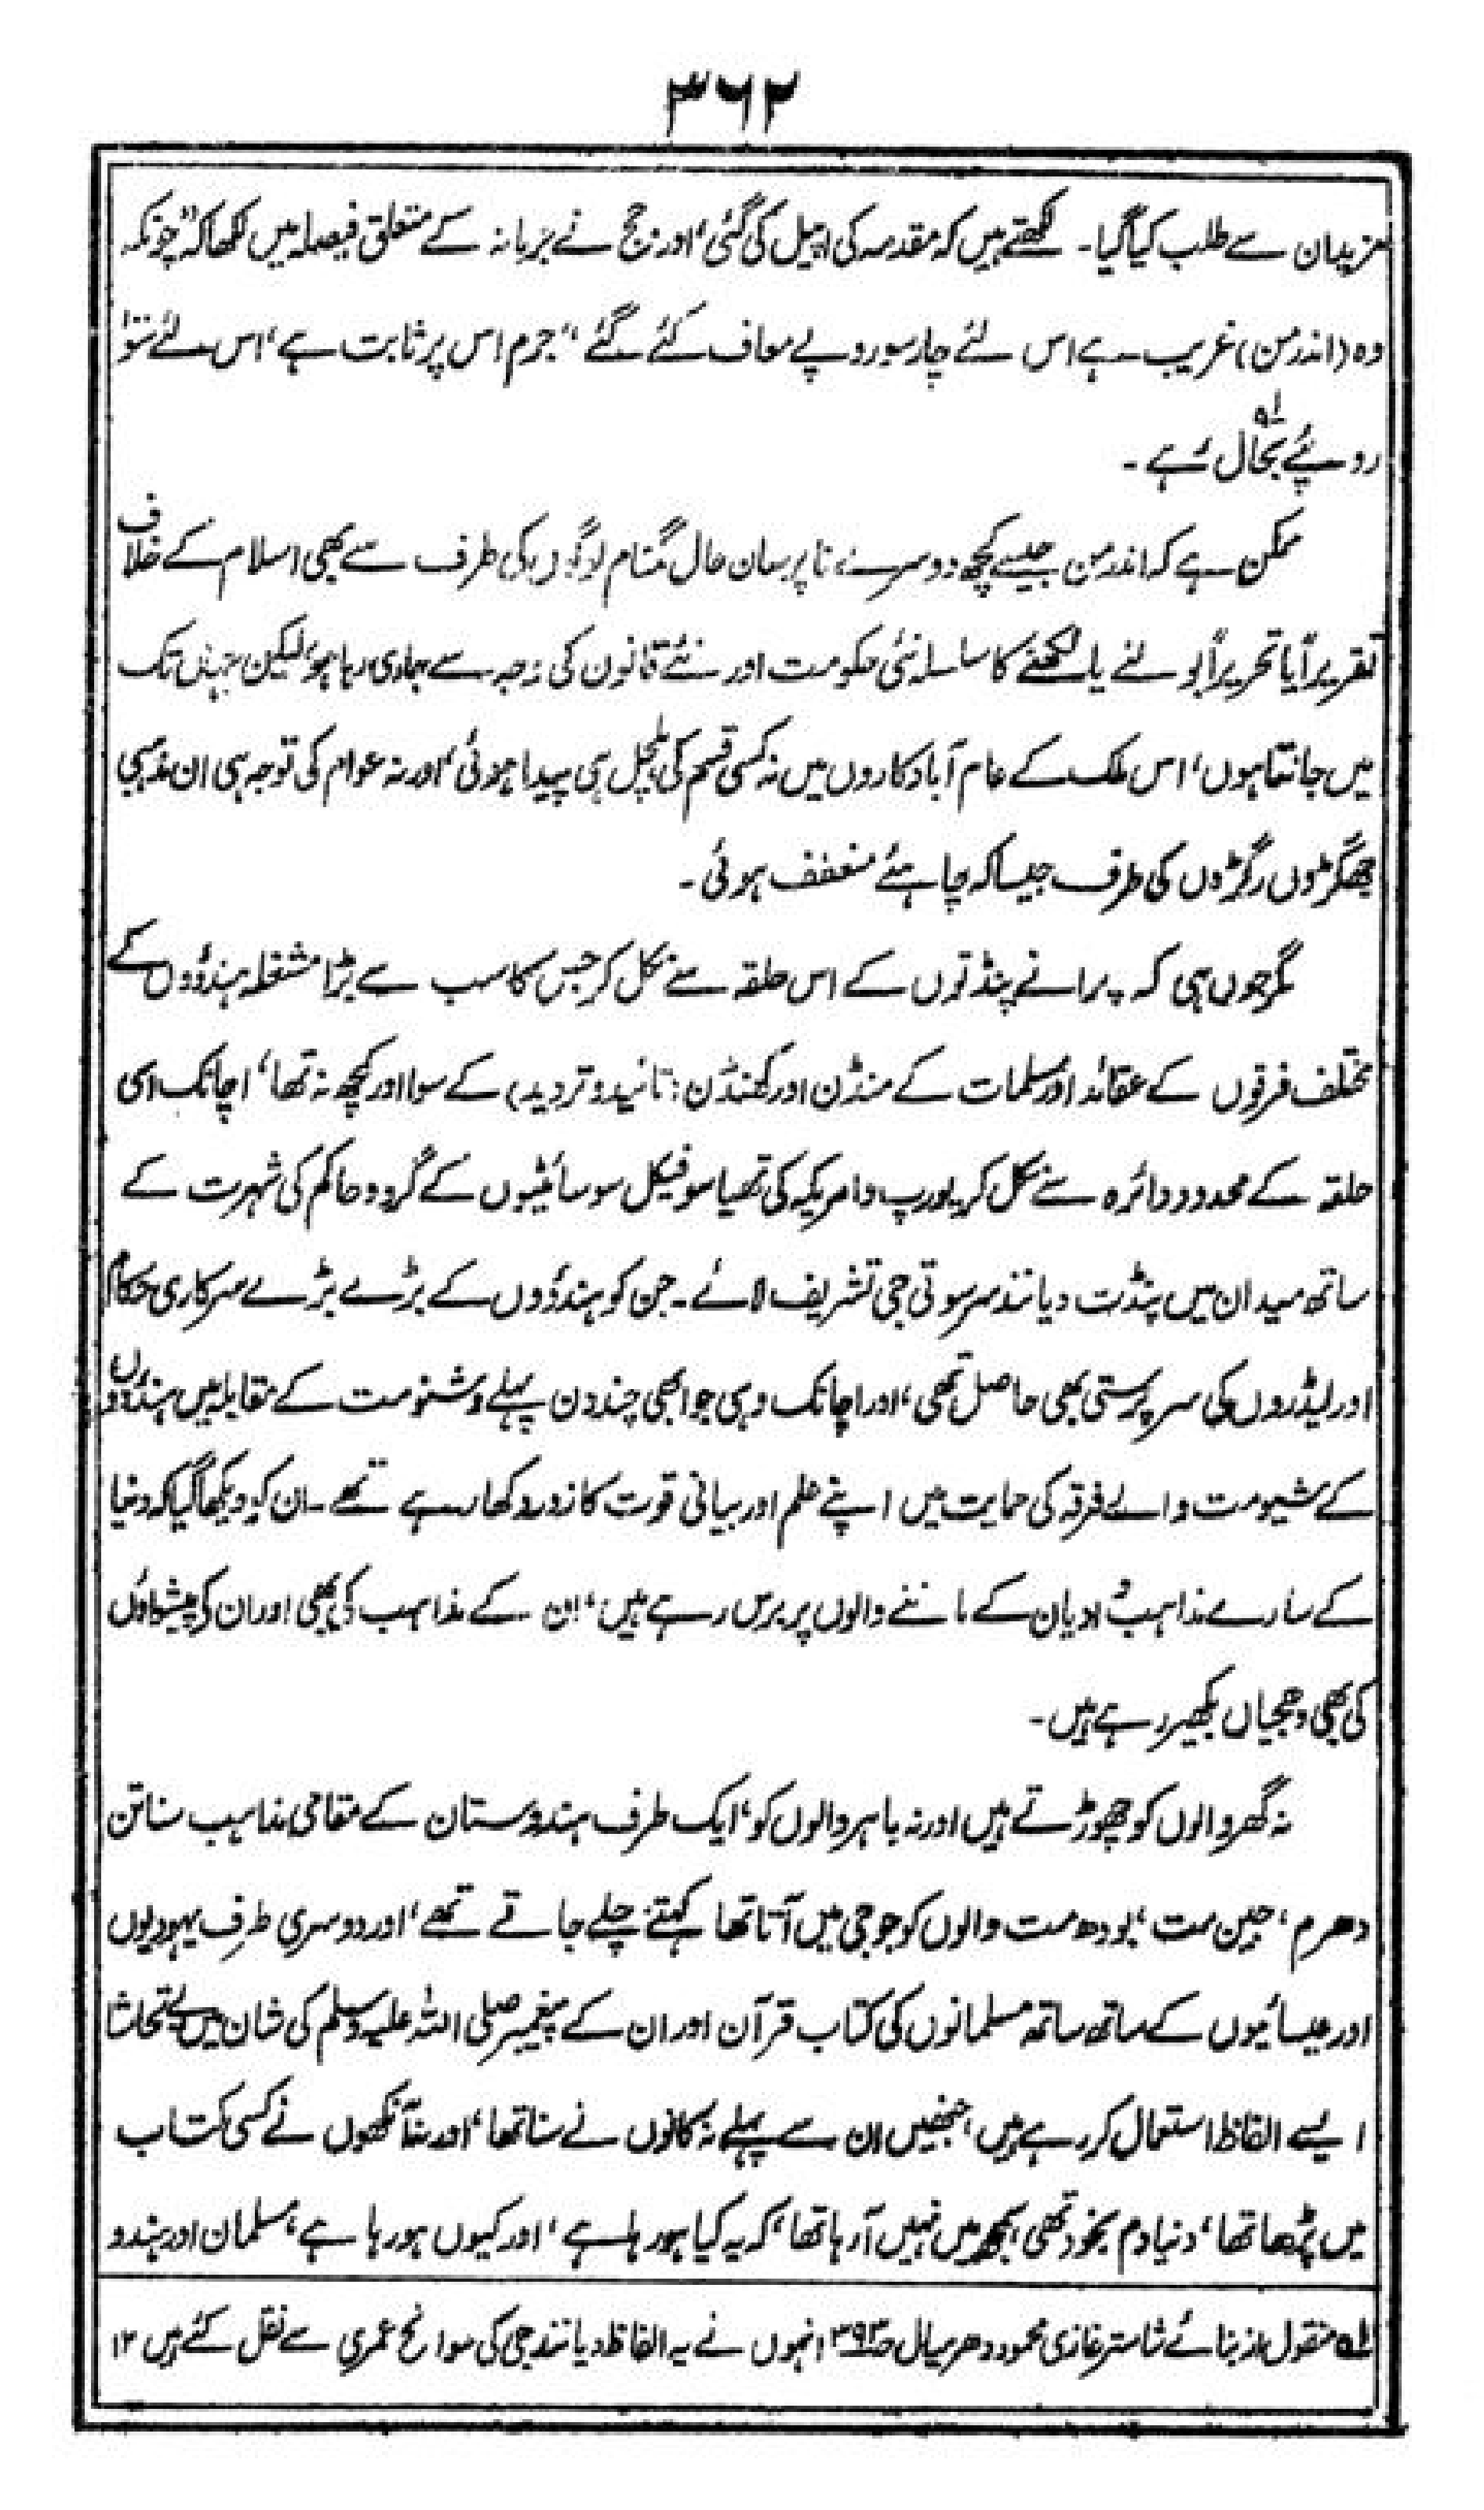 ۳۶۲
مزیدان سے طلب کیا گیا۔ لکھتے ہیں کہ مقدمہ کی اپیل کی گئی، اور جج نے جرمانہ کے متعلق فیصلہ میں لکھا کہ "چونکہ
وہ (اندرمن) غریب ہے اس لئے چار سو روپے معاف کئے گئے" جرم اس پر ثابت ہے، اس لئے سَو
روپئے بحال رہے۔ لہ
ممکن ہے کہ اندرمن جیسے کچھ دوسرے ناپرسان حال گمنام لوگوں کی طرف سے بھی اسلام کے خلاف
تقریراً یا تحریراً بولنے یا لکھنے کا سلسلہ نئی حکومت اور نئے قانون کی وجہ سے جاری رہا ہو، لیکن جہاں تک
میں جانتا ہوں، اس ملک کے عام آبادکاروں میں نہ کسی قسم کی ہلچل ہی پیدا ہوئی، اور نہ عوام کی توجہ ہی ان مذہبی
جھگڑوں رگڑوں کی طرف جیسا کہ چاہئے منعطف ہوئی۔
مگر جوں ہی کہ پرانے پنڈتوں کے اس حلقہ سے نکل کر جس کا سب سے بڑا مشغلہ ہندوؤں کے
مختلف فرقوں کے عقائد اور مسلمات کے منڈن اور کھنڈن (تائید و تردید) کے سوا اور کچھ نہ تھا، اچانک اسی
حلقہ کے محدود دائرہ سے نکل کر یورپ و امریکہ کی تھیاسوفیکل سوسائٹیوں کے گرو و حاکم کی شہرت کے
ساتھ میدان میں پنڈت دیانند سرسوتی جی تشریف لائے۔ جن کو ہندوؤں کے بڑے بڑے سرکاری حکام
اور لیڈروں کی سرپرستی بھی حاصل تھی، اور اچانک وہی جو ابھی چند دن پہلے وشنومت کے مقابلہ میں ہندوؤں
کے شیومت والے فرقہ کی حمایت میں اپنے علم اور بیانی قوت کا زور دکھا رہے تھے۔ ان کو دیکھا گیا کہ دنیا
کے سارے مذاہب و ادیان کے ماننے والوں پر برس رہے ہیں، ان کے مذاہب کی بھی اور ان کے پیشواؤں
کی بھی دھجیاں بکھیر رہے ہیں۔
نہ گھر والوں کو چھوڑتے ہیں اور نہ باہر والوں کو، ایک طرف ہندوستان کے مقامی مذاہب سناتن
دھرم، جین مت، بودھ مت والوں کو جو جی میں آتا تھا کہتے چلے جاتے تھے، اور دوسری طرف یہودیوں
اور عیسائیوں کے ساتھ ساتھ مسلمانوں کی کتاب قرآن اور ان کے پیغمبر صلی اللہ علیہ وسلم کی شان میں بے تحاشا
ایسے الفاظ استعمال کر رہے ہیں، جنھیں ان سے پہلے نہ کانوں نے سنا تھا، اور نہ آنکھوں نے کسی کتاب
میں پڑھا تھا، دنیا دم بخود تھی، سمجھ میں نہیں آ رہا تھا، کہ یہ کیا ہو رہا ہے، اور کیوں ہو رہا ہے، مسلمان اور ہندو
لہ منقول از بنائے شاستر غازی محمود دھرمپال ص۳۹۳ انہوں نے یہ الفاظ دیانند جی کی سوانح عمری سے نقل کئے ہیں ۱۲